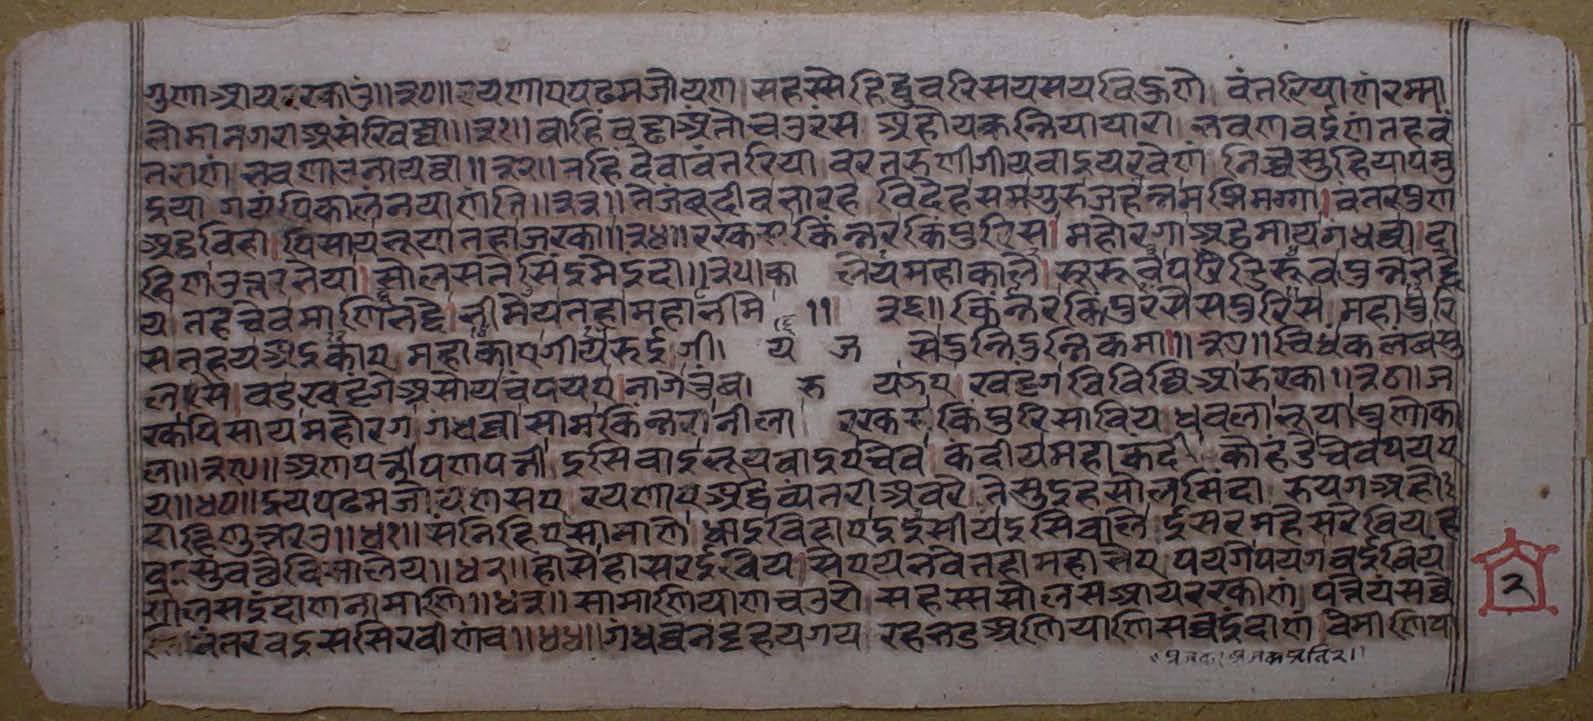 गुणा आयररकाउ॥३०॥ रयणाए पढमजोयण। सहस्से हिट्ठुवरिसयसयविहूणे। वंतरियाणं रम्मा
भोमा नगरा असंखिज्जा॥३१॥ बाहिं वट्टा अंतो चउरंस। अहो य कन्नियायारा। भवणवईणं तह वं
तराणं भवणाउ नायव्वा॥३२॥ तहिं देवा वंतरिया। वरतरुणीगीयवाइयरवेणं। निच्चं सुहिया पमु
इया गयंपि कालं न याणंति॥३३॥ ते जंबुदीव भारह। विदेहसम गुरु जहन्न मज्झिमगा। वंतर पुण
अट्ठविहा। पिसाय भूया तहा जरका॥३४॥ ररकस किंनर किंपुरिस। महोरगा अट्ठमा य गंधव्वा। दा
हिणउत्तरभेया। सोलस तेसिं इमे इंदा॥३५॥ काले य महाकाले। सुरूव पडिरूव पुन्नभद्दे
य तह चेव माणिभद्दे। भीमे य तहा महाभीमे॥३६॥ किंनर किंपुरिसे सपुरिसे महापुरि
स तह य अइकाए महाकाए गीयरई गी। यजसे दुन्नि दुन्नि कमा॥३७॥ चिंधं कलंब सु
लसे। वड खट्टंगे असोय चंपयए। नागे तुंबरु यज्झए खट्टंग विवज्जिआ रुरका॥३८॥ ज
रक पिसाय महोरग गंधव्वा साम किंनरा नीला। ररकस किंपुरिसा विय धवला भूया पुणो का
ला॥३९॥ अणपन्नी पणपन्नी इसिवाइ भूयवाइए चेव। कंदी य महाकंदी। कोहंडे चेव पयए
य॥४०॥ इय पढमजोयणसए रयणाए अट्ठ वंतरा अवरे। तेसु इह सोलसिंदा रुयगअहो
दाहिणुत्तरउ॥४१॥ संनिहिए सामाणे धाइ विहाए इसी य इसिवाले। ईसर महेसरे विय ह
वइ सुवच्छे विसाले य॥४२॥ हासे हासरई विय। सेए य भवे तहा महासेए पयगे पयगवई विय
सोलस इंदाण नामाणि॥४३॥ सामाणियाण चउरो। सहस्स सोलस आयररकाणं। पत्तेयं सव्वे
सिं वंतरवइ ससिरवीणं च॥४४॥ गंधव्व नट्ट हय गय रह भड अणियाणि सव्वइंदाण वेमाणिया
२